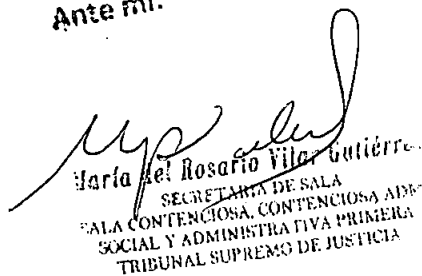 Ante mí.
María del Rosario Vilar Gutiérr
SECRETARIA DE SALA
SALA CONTENCIOSA, CONTENCIOSA ADM
SOCIAL Y ADMINISTRATIVA PRIMERA
TRIBUNAL SUPREMO DE JUSTICIA